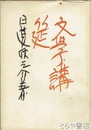 文學講
筵
日夏耿之介著
もちや書店